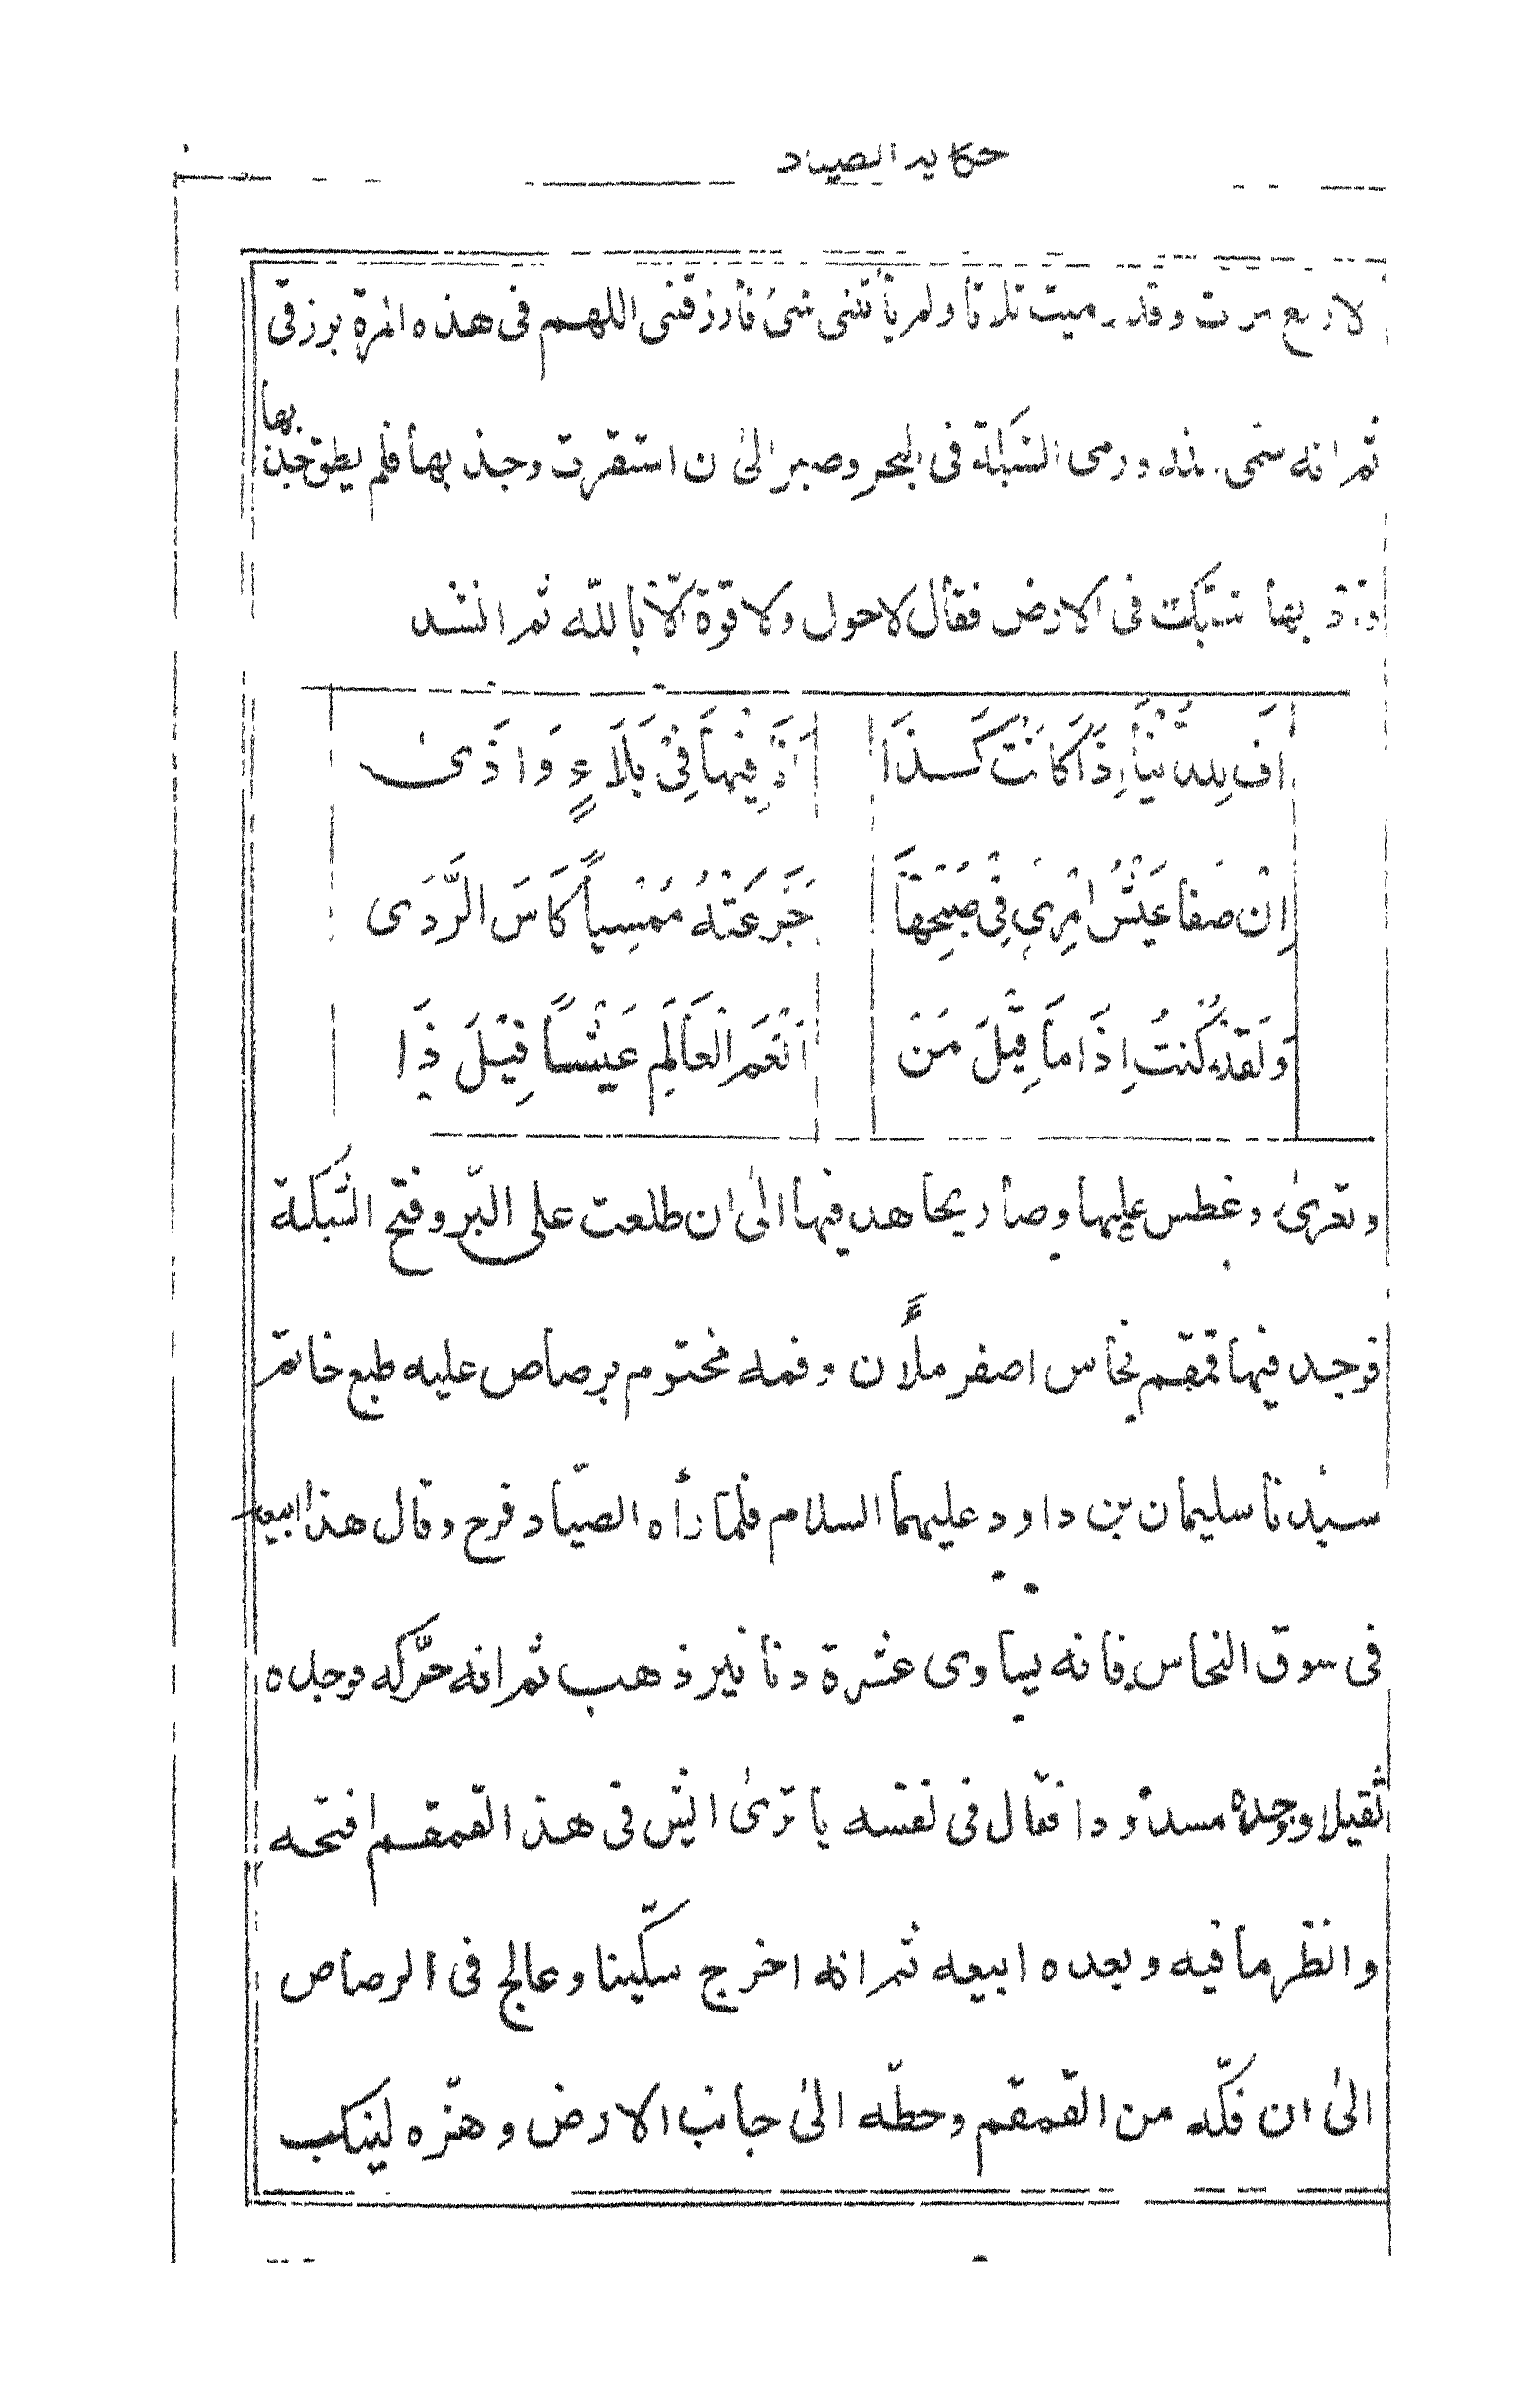 حكاية الصياد
لاربع مرات وقد رميت ثلاثا ولم يأتنى شئ فارزقنى اللهم فى هذه المرة برزقى
ثم انه سمى الله ورمى الشبكة فى البحر وصبر الى ان استقرت وجذبها فلم يطق جذبها
وقد بها شتبكت فى الارض فقال لا حول ولا قوة الّا بالله ثم انشد
اُفّ لِلدُّنْيَا اِذَا كَانَتْ كَذَا اَنَا فِيْهَا فِيْ بَلَاءٍ وَاَذَى
اِنْ صَفَا عَيْشُ امْرِئٍ فِيْ صُبْحِهَا جَرَّعَتْهُ مُمْسِياً كَاسَ الرَّدَى
وَلَقَدْ كُنْتُ اِذَا مَا قِيْلَ مَنْ اَنْعَمَ الْعَالَمِ عَيْشاً قِيْلَ ذَا
وتعرىٰ وغطس عليها وصار يجاهد فيها الىٰ ان طلعت على البّر وفتح الشبكة
فوجد فيها قمقم نحاس اصفر ملآن وفمه مختوم برصاص عليه طبع خاتم
سيدنا سليمان بن داود عليهما السلام فلما رأه الصياد فرح وقال هذا ابيعه
فى سوق النحاس فانه يساوى عشرة دنانير ذهب ثم انه حرّكه فوجده
ثقيلا وجده مسدودا فقال فى نفسه يا ترىٰ ايش فى هذا القمقم افتحه
وانظر ما فيه وبعده ابيعه ثم انه اخرج سكّينا وعالج فى الرصاص
الىٰ ان فكّه من القمقم وحطّه الىٰ جانب الارض وهزّه لينكب